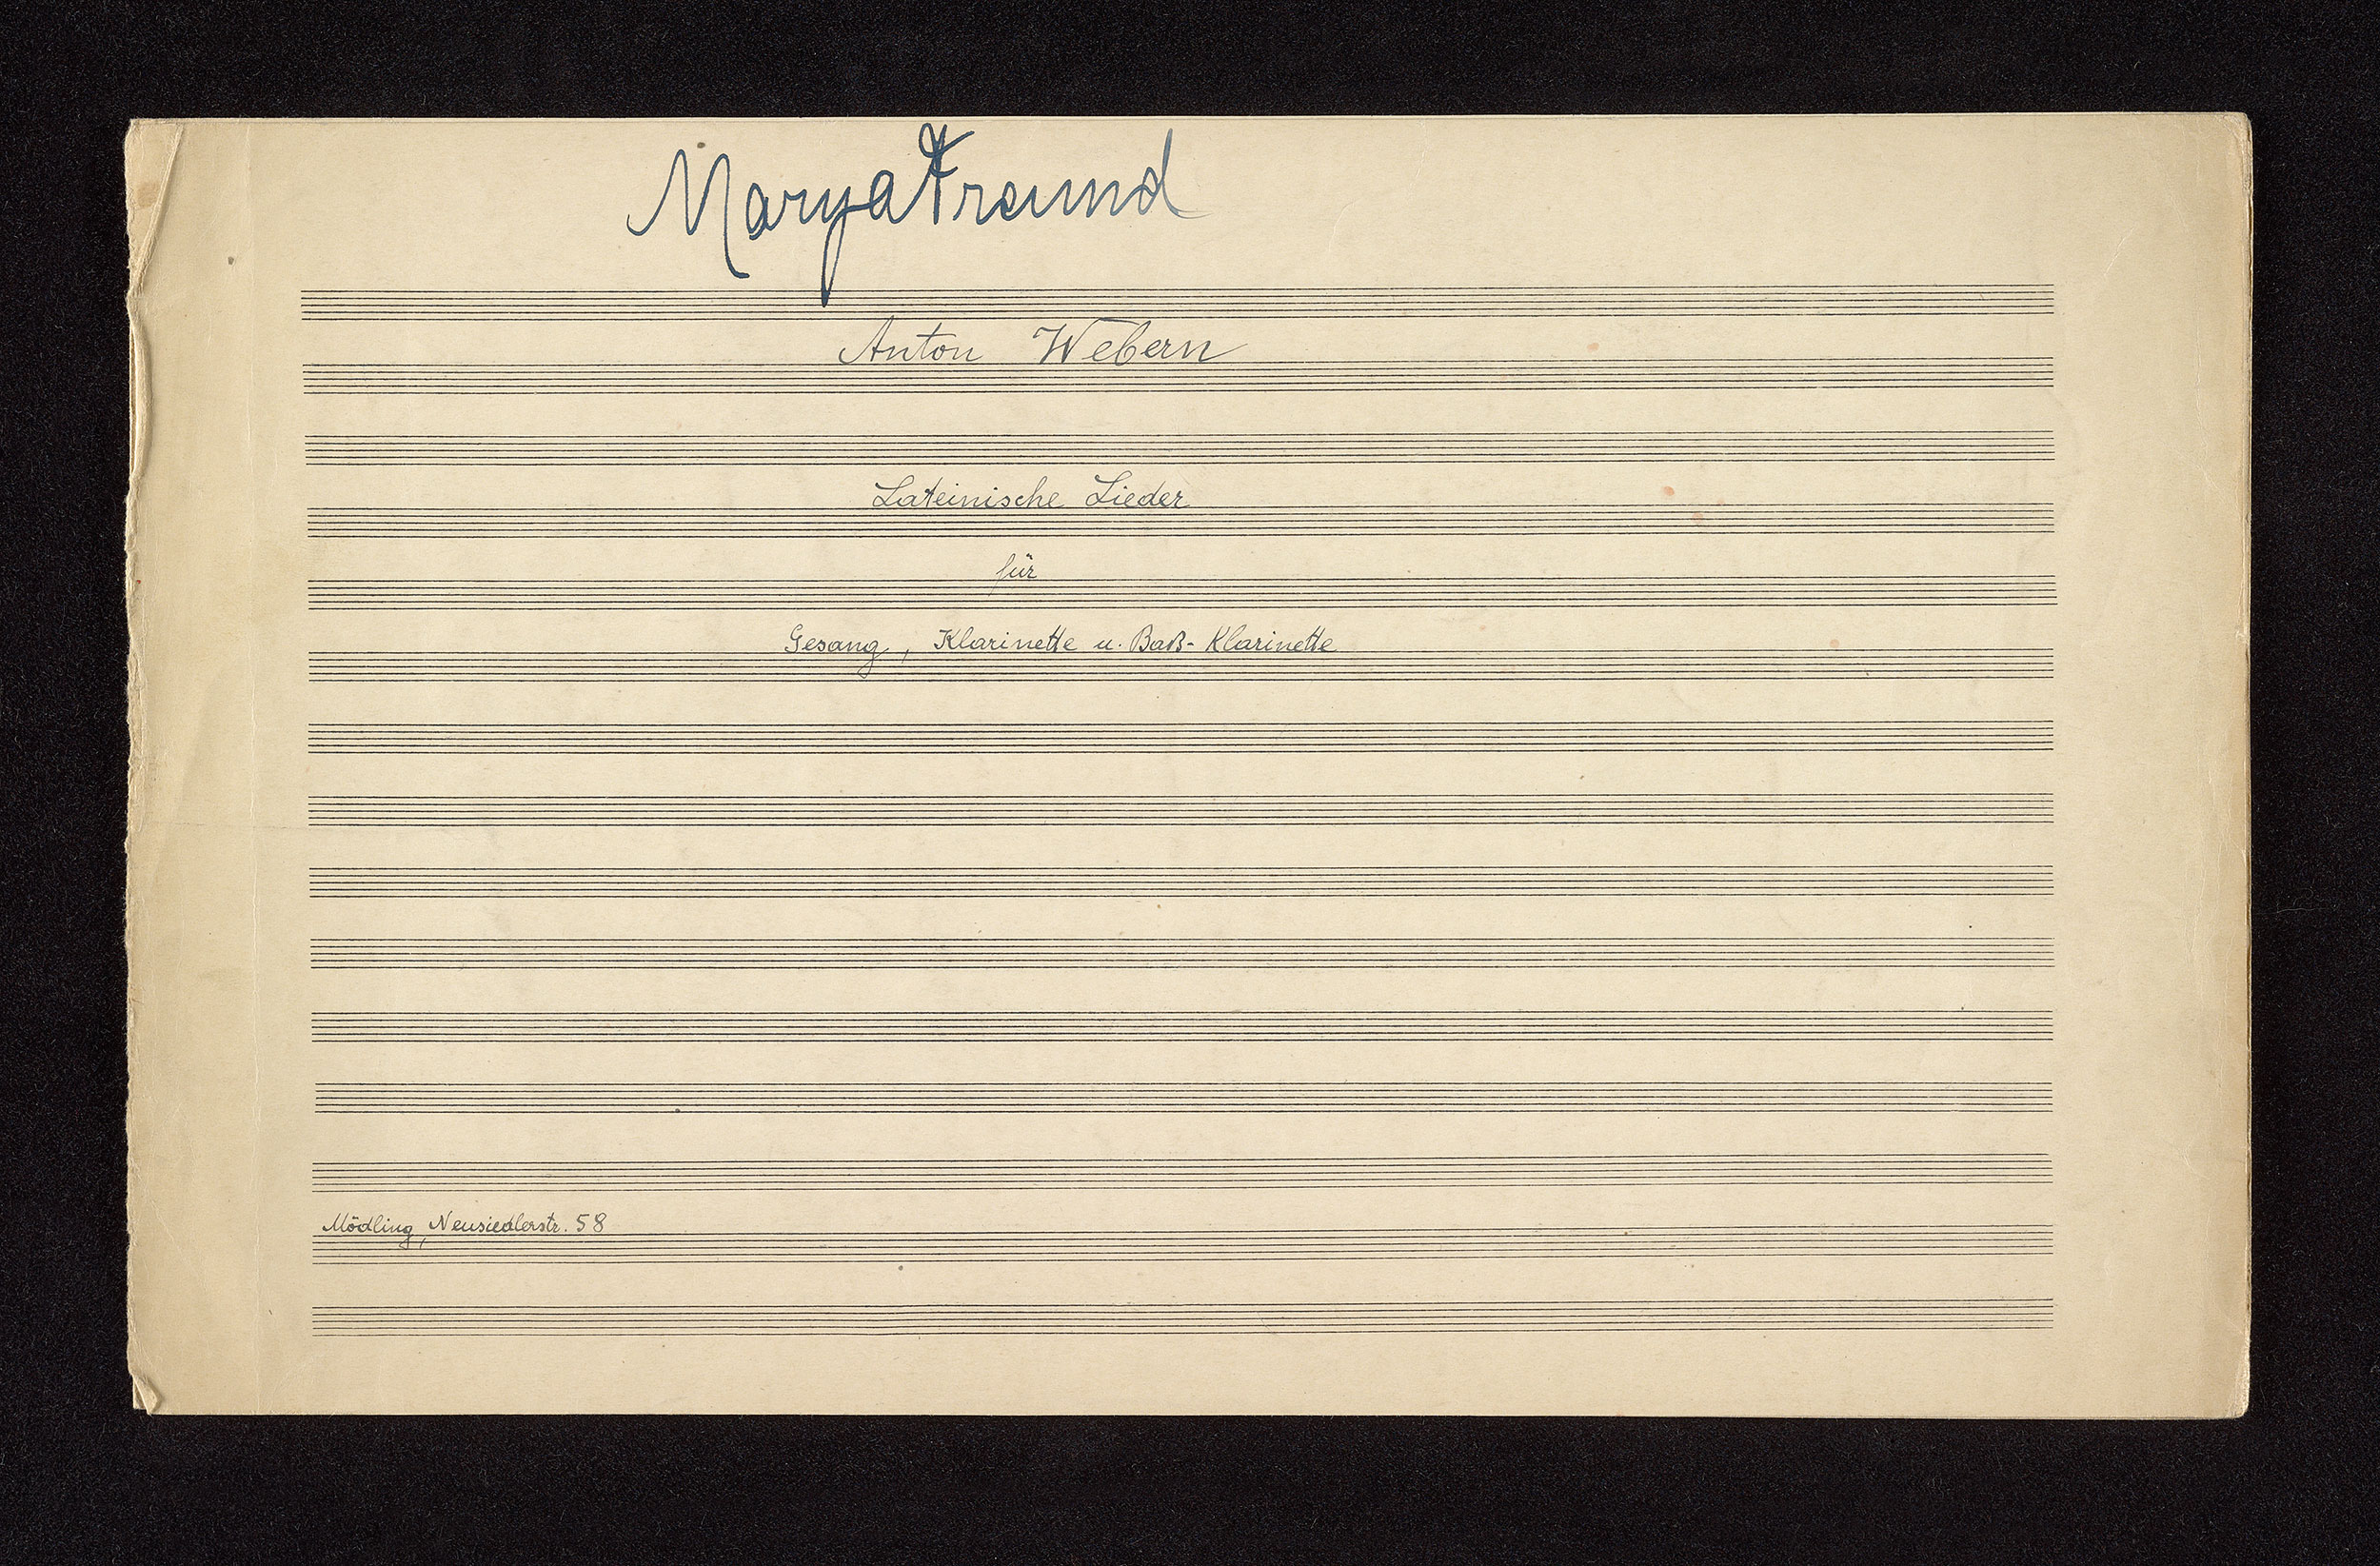 Marya Freund
Anton Webern
Lateinische Lieder
für
Gesang, Klarinette u. Baß-Klarinette
Mödling, Neusiedlerstr. 58